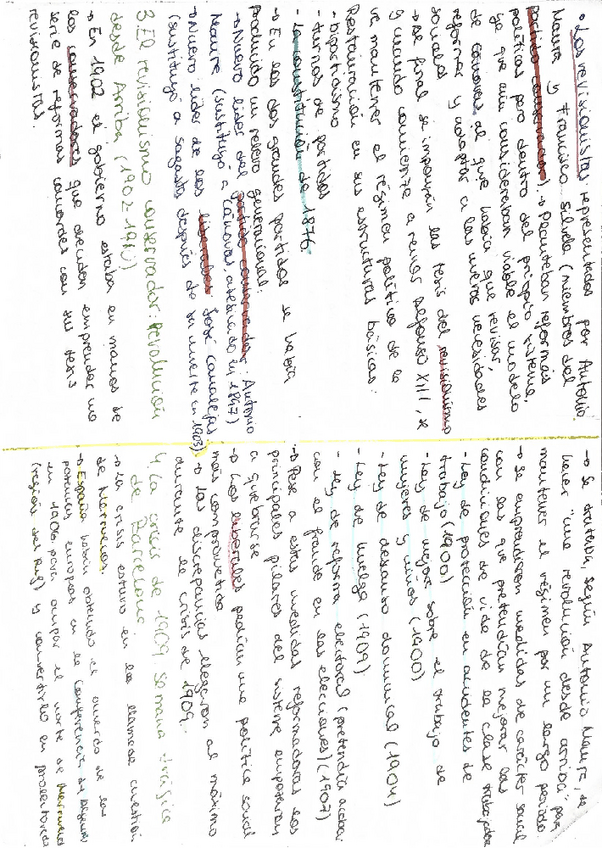 → Los revisionistas: representados por Antonio
Maura y Francisco Silvela (miembros del
partido conservador). → Planteaban reformas
políticas pero dentro del propio sistema,
ya que aún consideraban viable el modelo
de Cánovas al que había que revisar,
reformar y adaptar a las nuevas necesidades
sociales
→ Al final se impondrán las tesis del revisionismo
y cuando comienza a reinar Alfonso XIII, se
ve mantener el régimen político de la
Restauración en sus estructuras básicas:
- Bipartidismo
- turnos de partidos
- La constitución de 1876
→ En los dos grandes partidos se había
producido un relevo generacional:
→ Nuevo líder del partido conservador: Antonio
Maura (sustituyó a Cánovas, asesinado en 1897)
→ Nuevo líder de los liberales: José Canalejas
(sustituyó a Sagasta después de su muerte en 1903)
3. El revisionismo conservador: Revolución
desde Arriba (1902-19)
→ En 1902 el gobierno estaba en manos de
los conservadores que deciden emprender una
serie de reformas concordes con sus tesis
revisionistas.
→ Se trataba, según Antonio Maura, de
hacer "una revolución desde arriba" para
mantener el régimen por un largo periodo
→ Se emprendieron medidas de carácter social
con las que pretendían mejorar las
condiciones de vida de la clase trabajadora
- Ley de protección en accidentes de
trabajo (1900)
- Ley de mejor sobre el trabajo de
mujeres y niños (1900)
- Ley de descanso dominical (1904)
- Ley de huelga (1909)
- Ley de reforma electoral (pretendía acabar
con el fraude en las elecciones) (1907)
→ Pese a estas medidas reformadoras los
principales pilares del sistema empezaron
a quebrarse
→ Los liberales pedían una política social
más comprometida
→ Las discrepancias llegaron al máximo
durante la crisis de 1909.
4. La crisis de 1909. Semana trágica
de Barcelona
→ La crisis estuvo en la llamada cuestión
de Marruecos.
→ España había obtenido el acuerdo de las
potencias europeas en la Conferencia de Algeciras
en 1906 para ocupar el norte de Marruecos
(región del Rif) y convertirlo en protectorado